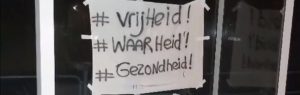 # vrijHeid!
# WAARHeid!
# Gezondheid!